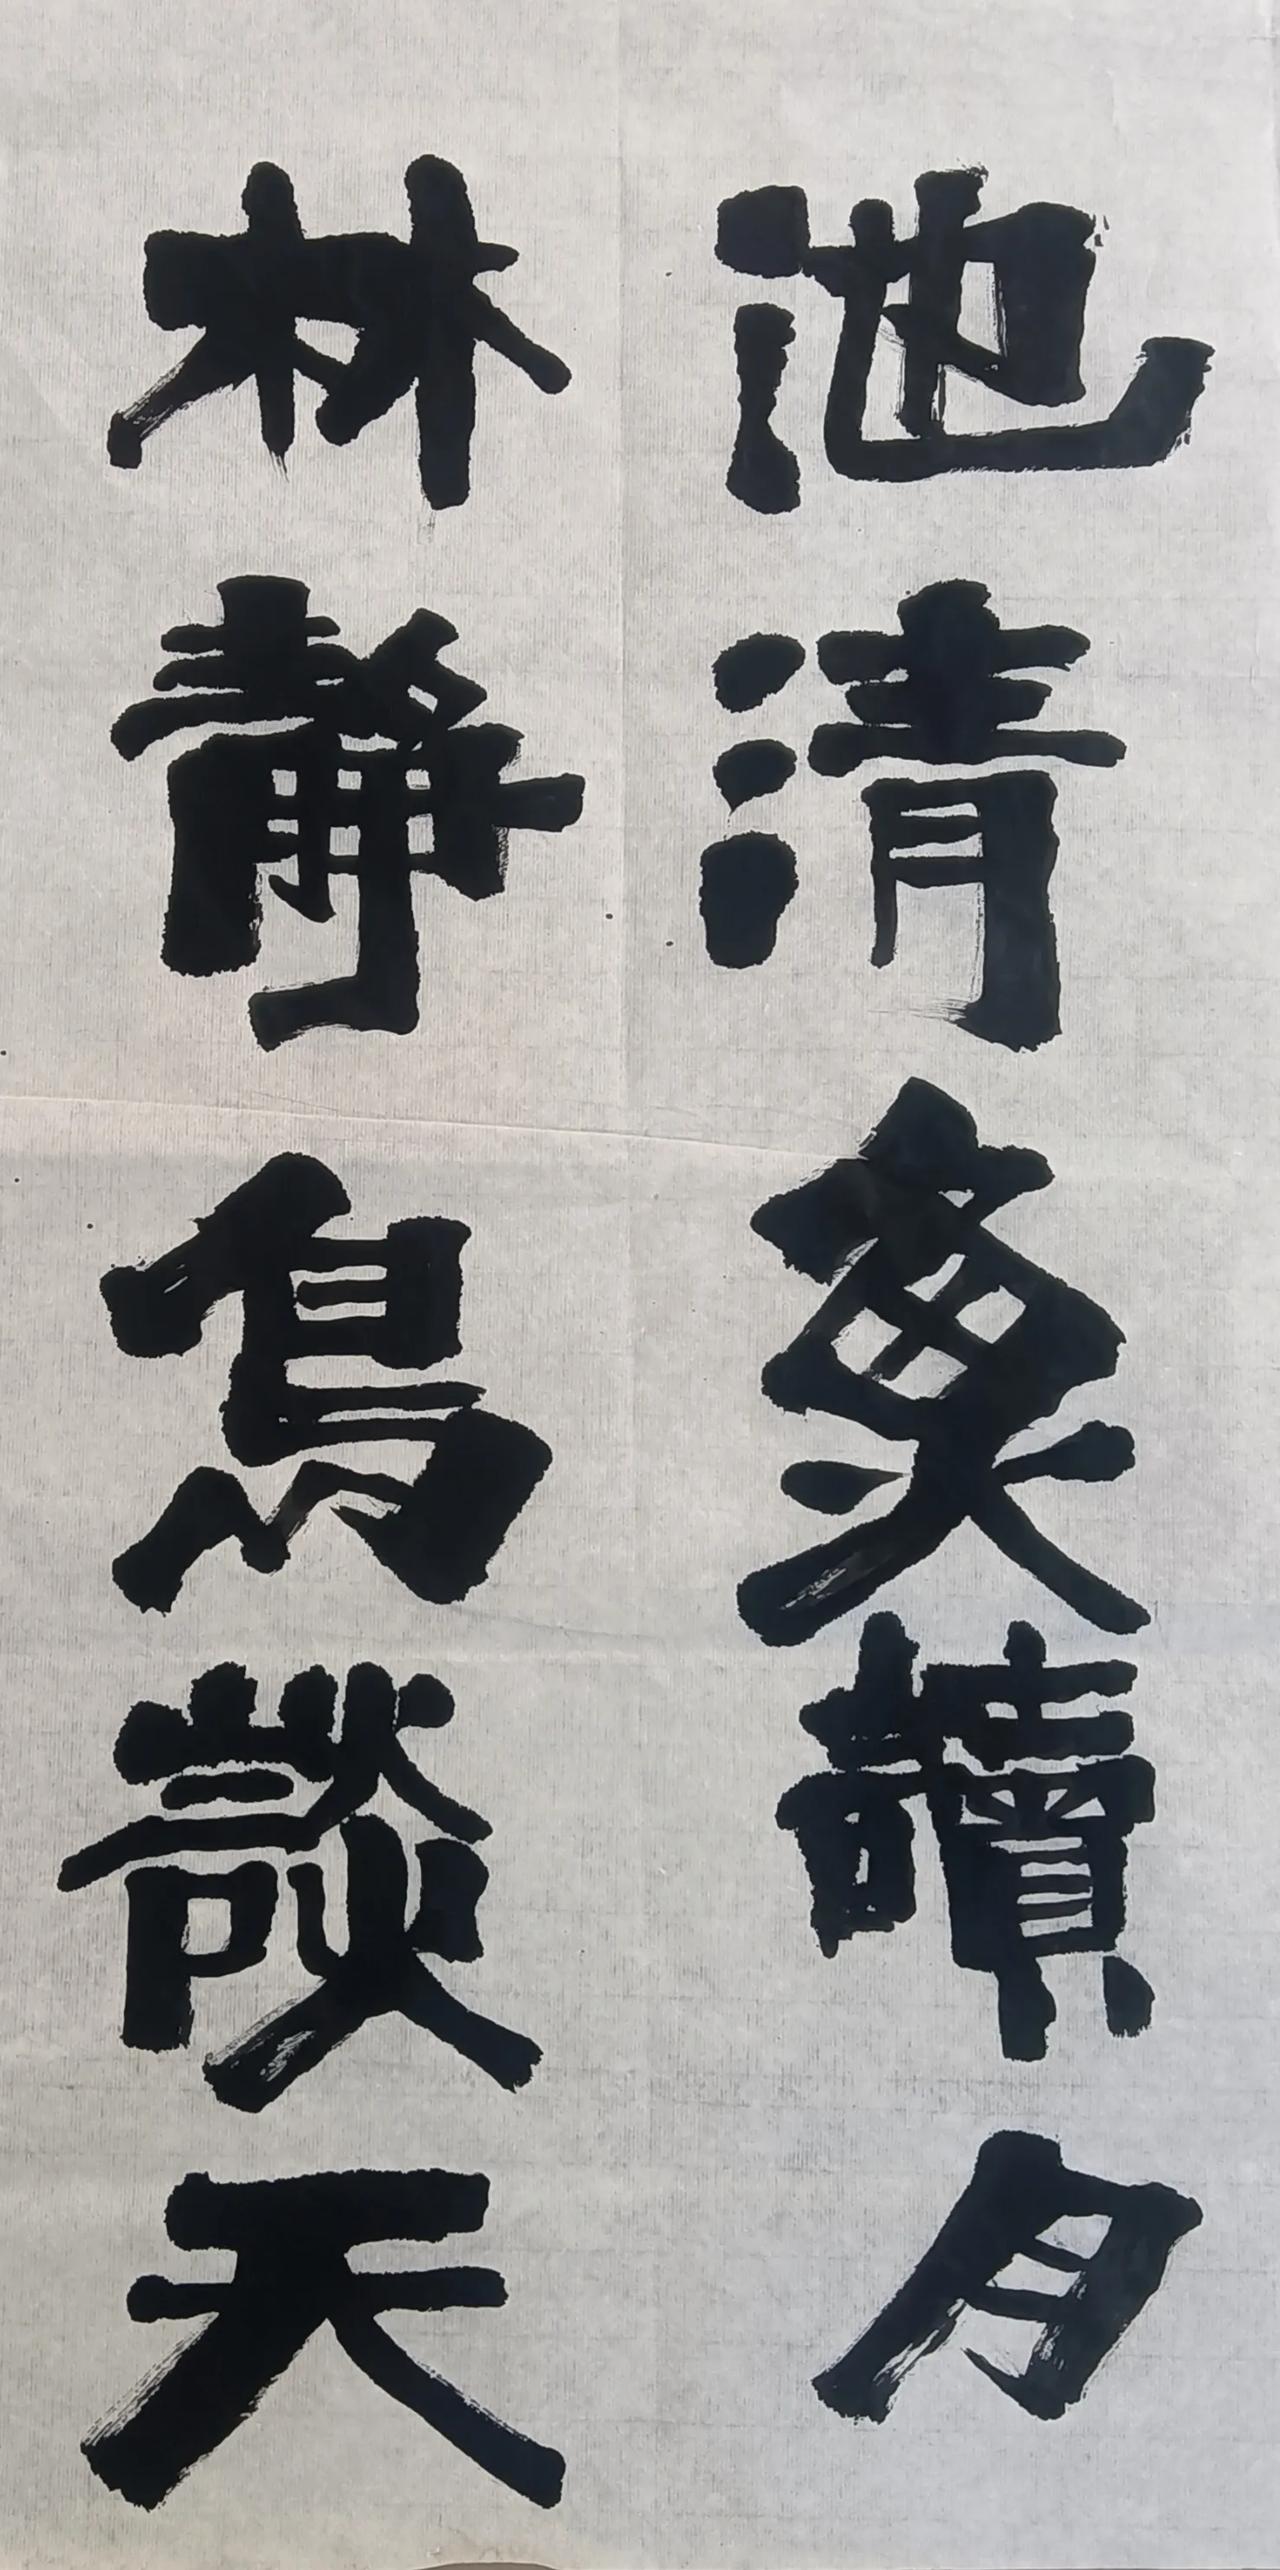 池清魚讀月
林靜鳥談天